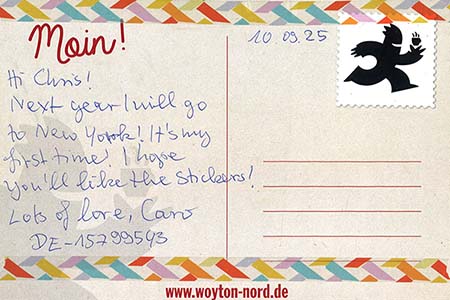 Moin!
10.09.25
Hi Chris!
Next year I will go
to New Yorok! It's my
first time! I hope
You'll like the Stickers!
Lots of love, Caro
DE-15799543
www.woyton-nord.de